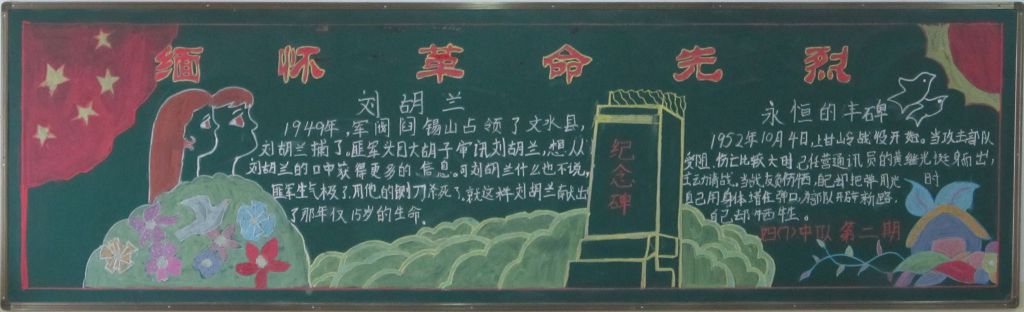 缅怀革命先烈
刘胡兰
1949年,军阀阎锡山占领了文水县,
刘胡兰捕了,匪军头目大胡子审讯刘胡兰,想从
刘胡兰的口中获得更多的信息。可刘胡兰什么也不说,
匪军生气极了,用他的铡刀杀死了,就这样刘胡兰献出
了那年仅15岁的生命。
纪念碑
永恒的丰碑
1952年10月4日,上甘岭战役开始。当攻击部队
受阻,伤亡比较大时,已任营通讯员的黄继光挺身而出,
主动请战。当战友负伤牺,配却把弹用光时
自己用身体堵在弹口,为部队开辟新路,
自己却牺牲。
四(7)中队第二期